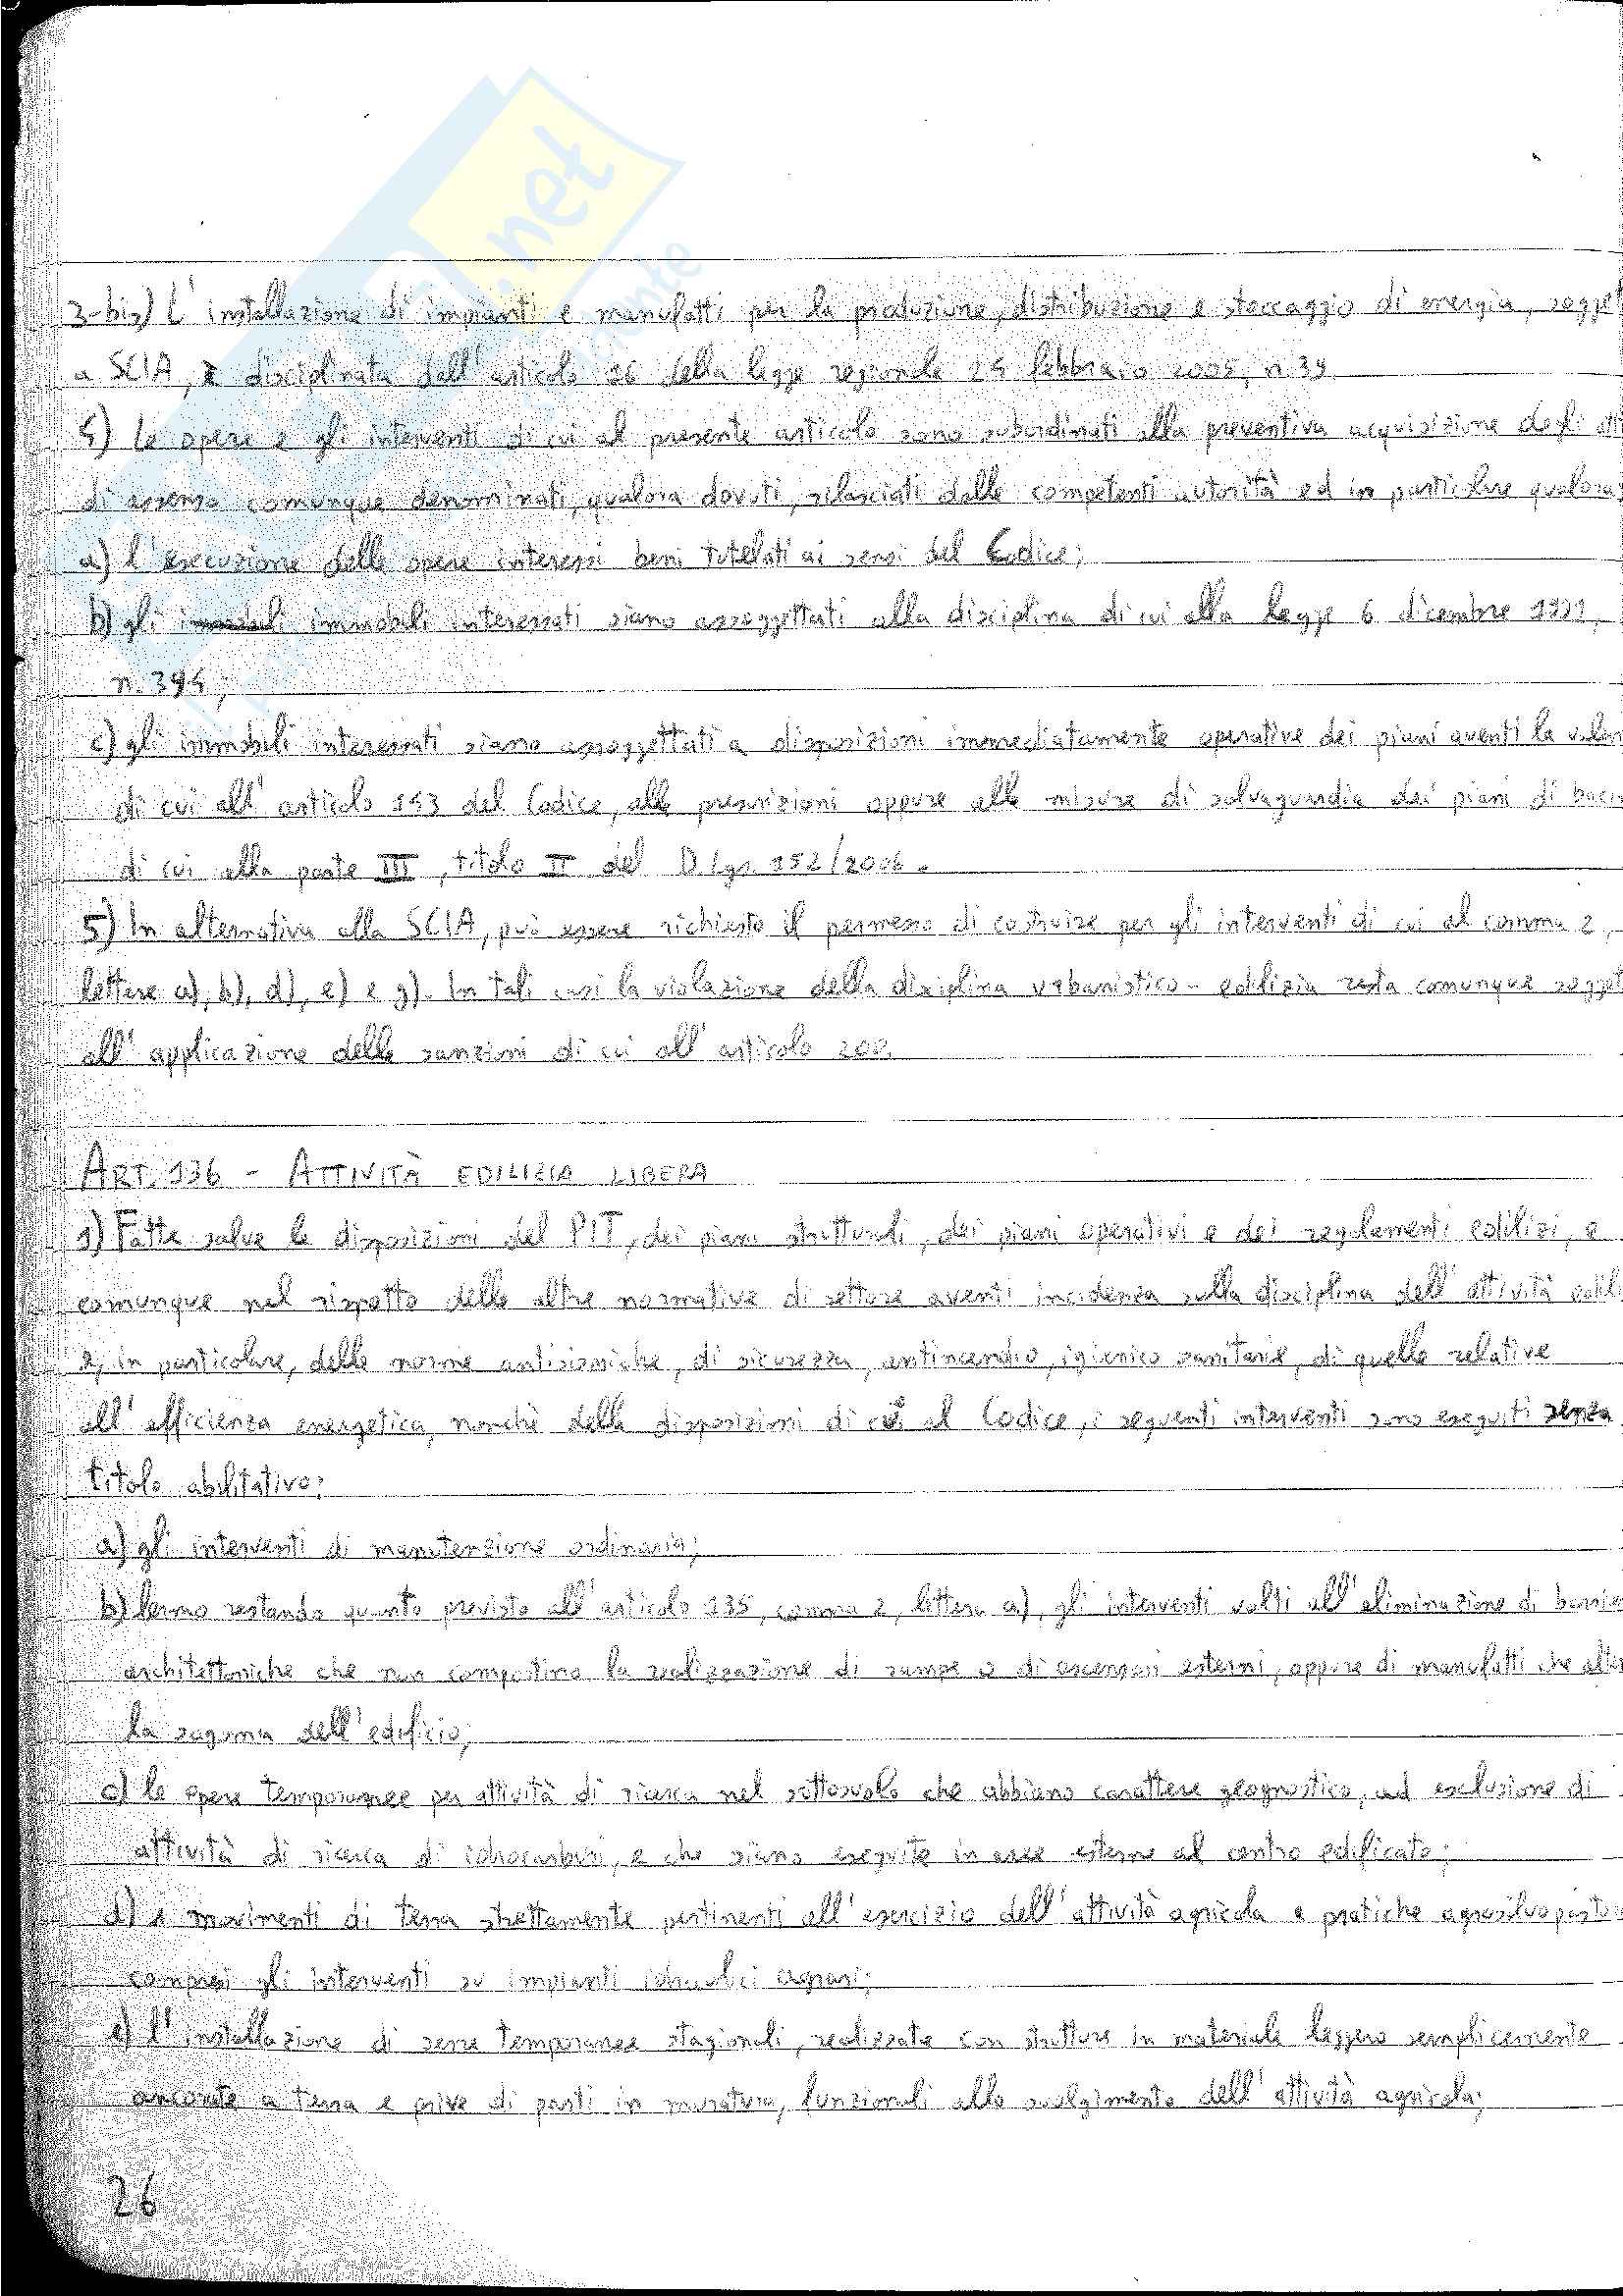 3-bis) L'installazione di impianti e manufatti per la produzione, distribuzione e stoccaggio di energia, sogget
a SCIA, è disciplinata dall'articolo 16 della legge regionale 24 febbraio 2005, n.39.
4) Le opere e gli interventi di cui al presente articolo sono subordinati alla preventiva acquisizione degli atti
di assenso comunque denominati, qualora dovuti, rilasciati dalle competenti autorità ed in particolare qualora:
a) l'esecuzione delle opere interessi beni tutelati ai sensi del Codice;
b) gli immobili interessati siano assoggettati alla disciplina di cui alla legge 6 dicembre 1991,
n. 394;
c) gli immobili interessati siano assoggettati a disposizioni immediatamente operative dei piani aventi la valen
di cui all'articolo 143 del Codice, alle prescrizioni oppure alle misure di salvaguardia dei piani di bacin
di cui alla parte III, titolo II del D.lgs. 152/2006.
5) In alternativa alla SCIA, può essere richiesto il permesso di costruire per gli interventi di cui al comma 2,
lettere a), b), d), e) e g). In tali casi la violazione della disciplina urbanistico-edilizia resta comunque sogget
all'applicazione delle sanzioni di cui all'articolo 200.
ART. 136 - ATTIVITÀ EDILIZIA LIBERA
1) Fatte salve le disposizioni del PIT, dei piani strutturali, dei piani operativi e dei regolamenti edilizi, e
comunque nel rispetto delle altre normative di settore aventi incidenza sulla disciplina dell'attività edili
e, in particolare, delle norme antisismiche, di sicurezza, antincendio, igienico sanitarie, di quelle relative
all'efficienza energetica, nonchè delle disposizioni di cui al Codice, i seguenti interventi sono eseguiti senza
titolo abilitativo:
a) gli interventi di manutenzione ordinaria;
b) fermo restando quanto previsto all'articolo 135, comma 2, lettera a), gli interventi volti all'eliminazione di barrie
architettoniche che non comportino la realizzazione di rampe o di ascensori esterni, oppure di manufatti che alter
la sagoma dell'edificio;
c) le opere temporanee per attività di ricerca nel sottosuolo che abbiano carattere geognostico, ad esclusione di
attività di ricerca di idrocarburi, e che siano eseguite in aree esterne al centro edificato;
d) i movimenti di terra strettamente pertinenti all'esercizio dell'attività agricola e pratiche agrosilvopastor
compresi gli interventi su impianti idraulici agrari;
e) l'installazione di serre temporanee stagionali, realizzate con strutture in materiale leggero semplicemente
ancorate a terra e prive di parti in muratura, funzionali allo svolgimento dell'attività agricola;
26
.net